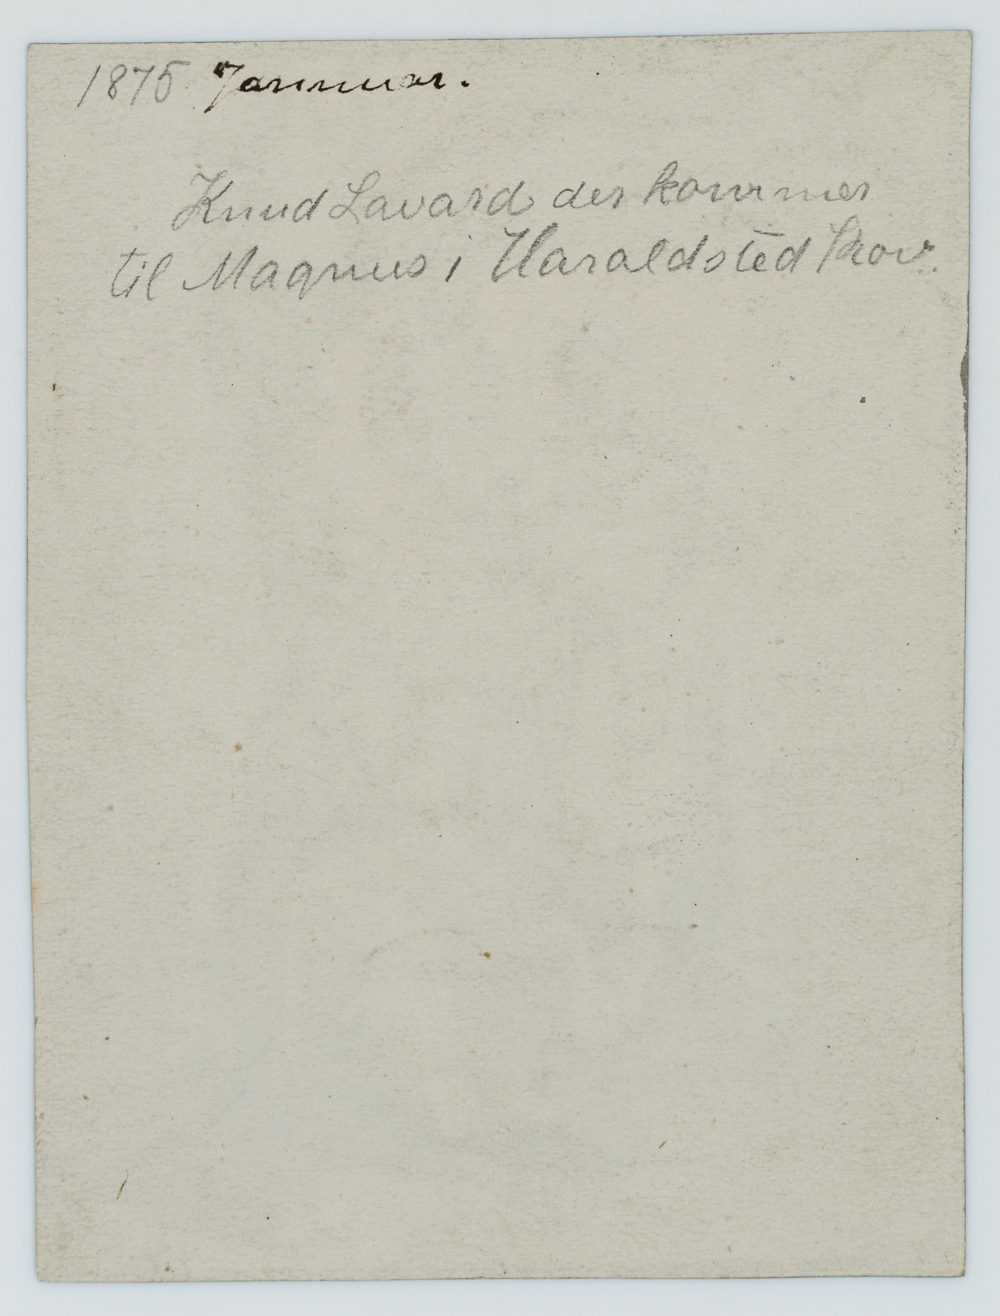 1875 Januar.
Knud Lavard der kommer
til Magnus i Haraldsted Skov.